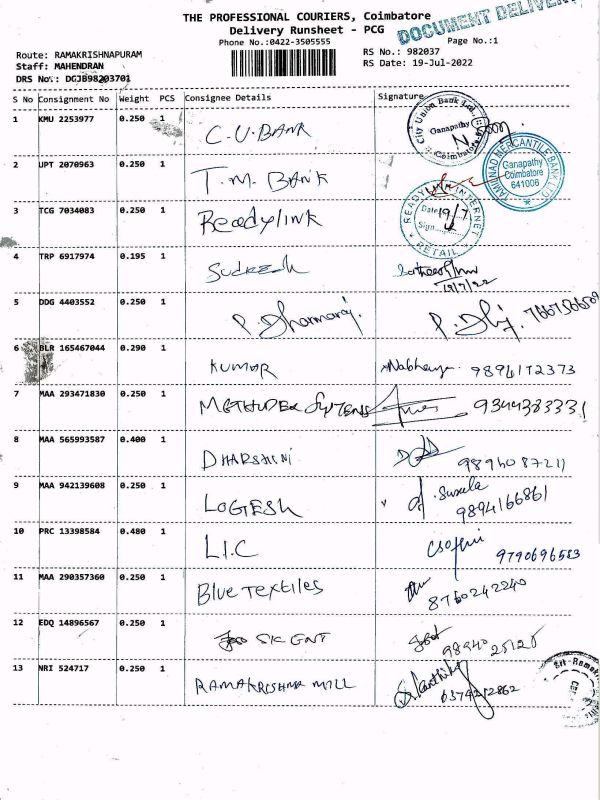 THE PROFESSIONAL COURIERS, Coimbatore
Delivery Runsheet - PCG
DOCUMENT
Phone No.:0422-3505555
Page No.:1
Route: RAMAKRISHNAPURAM
Staff: MAHENDRAN
DRS No.: DGJB98203701
RS No.: 982037
RS Date: 19-Jul-2022
S No Consignment No Weight PCS Consignee Details Signature
1 KMU 2253977 0.250 1 C.U.BANK
City Union Bank Ltd.,
Ganapathy
Coimbatore
2 JPT 2070963 0.250 1 T.M. BANK
TAMILNAD MERCANTILE BANK LTD
Ganapathy
Coimbatore
641006
3 TCG 7034083 0.250 1 Readylink
READYLINK INTERNET
Date 19/7
Sign
RETAIL
4 TRP 6917974 0.195 1
19/7/22
5 DDG 4403552 0.250 1 P. Dharmaraj.
6 BLR 165467044 0.290 1 KUMAR 9894172373
7 MAA 293471830 0.250 1 9344383331
8 MAA 565993587 0.400 1 DHARSHINI 9896087211
9 MAA 942139608 0.250 1 LOGESH Susela
9894166861
10 PRC 13398584 0.480 1 L.I.C 9790696583
11 MAA 290357360 0.250 1 Blue Textiles
8760242240
12 EDQ 14896567 0.250 1 SK GNT
98940 25120
13 NRI 524717 0.250 1 RAMAKRISHNA MILL